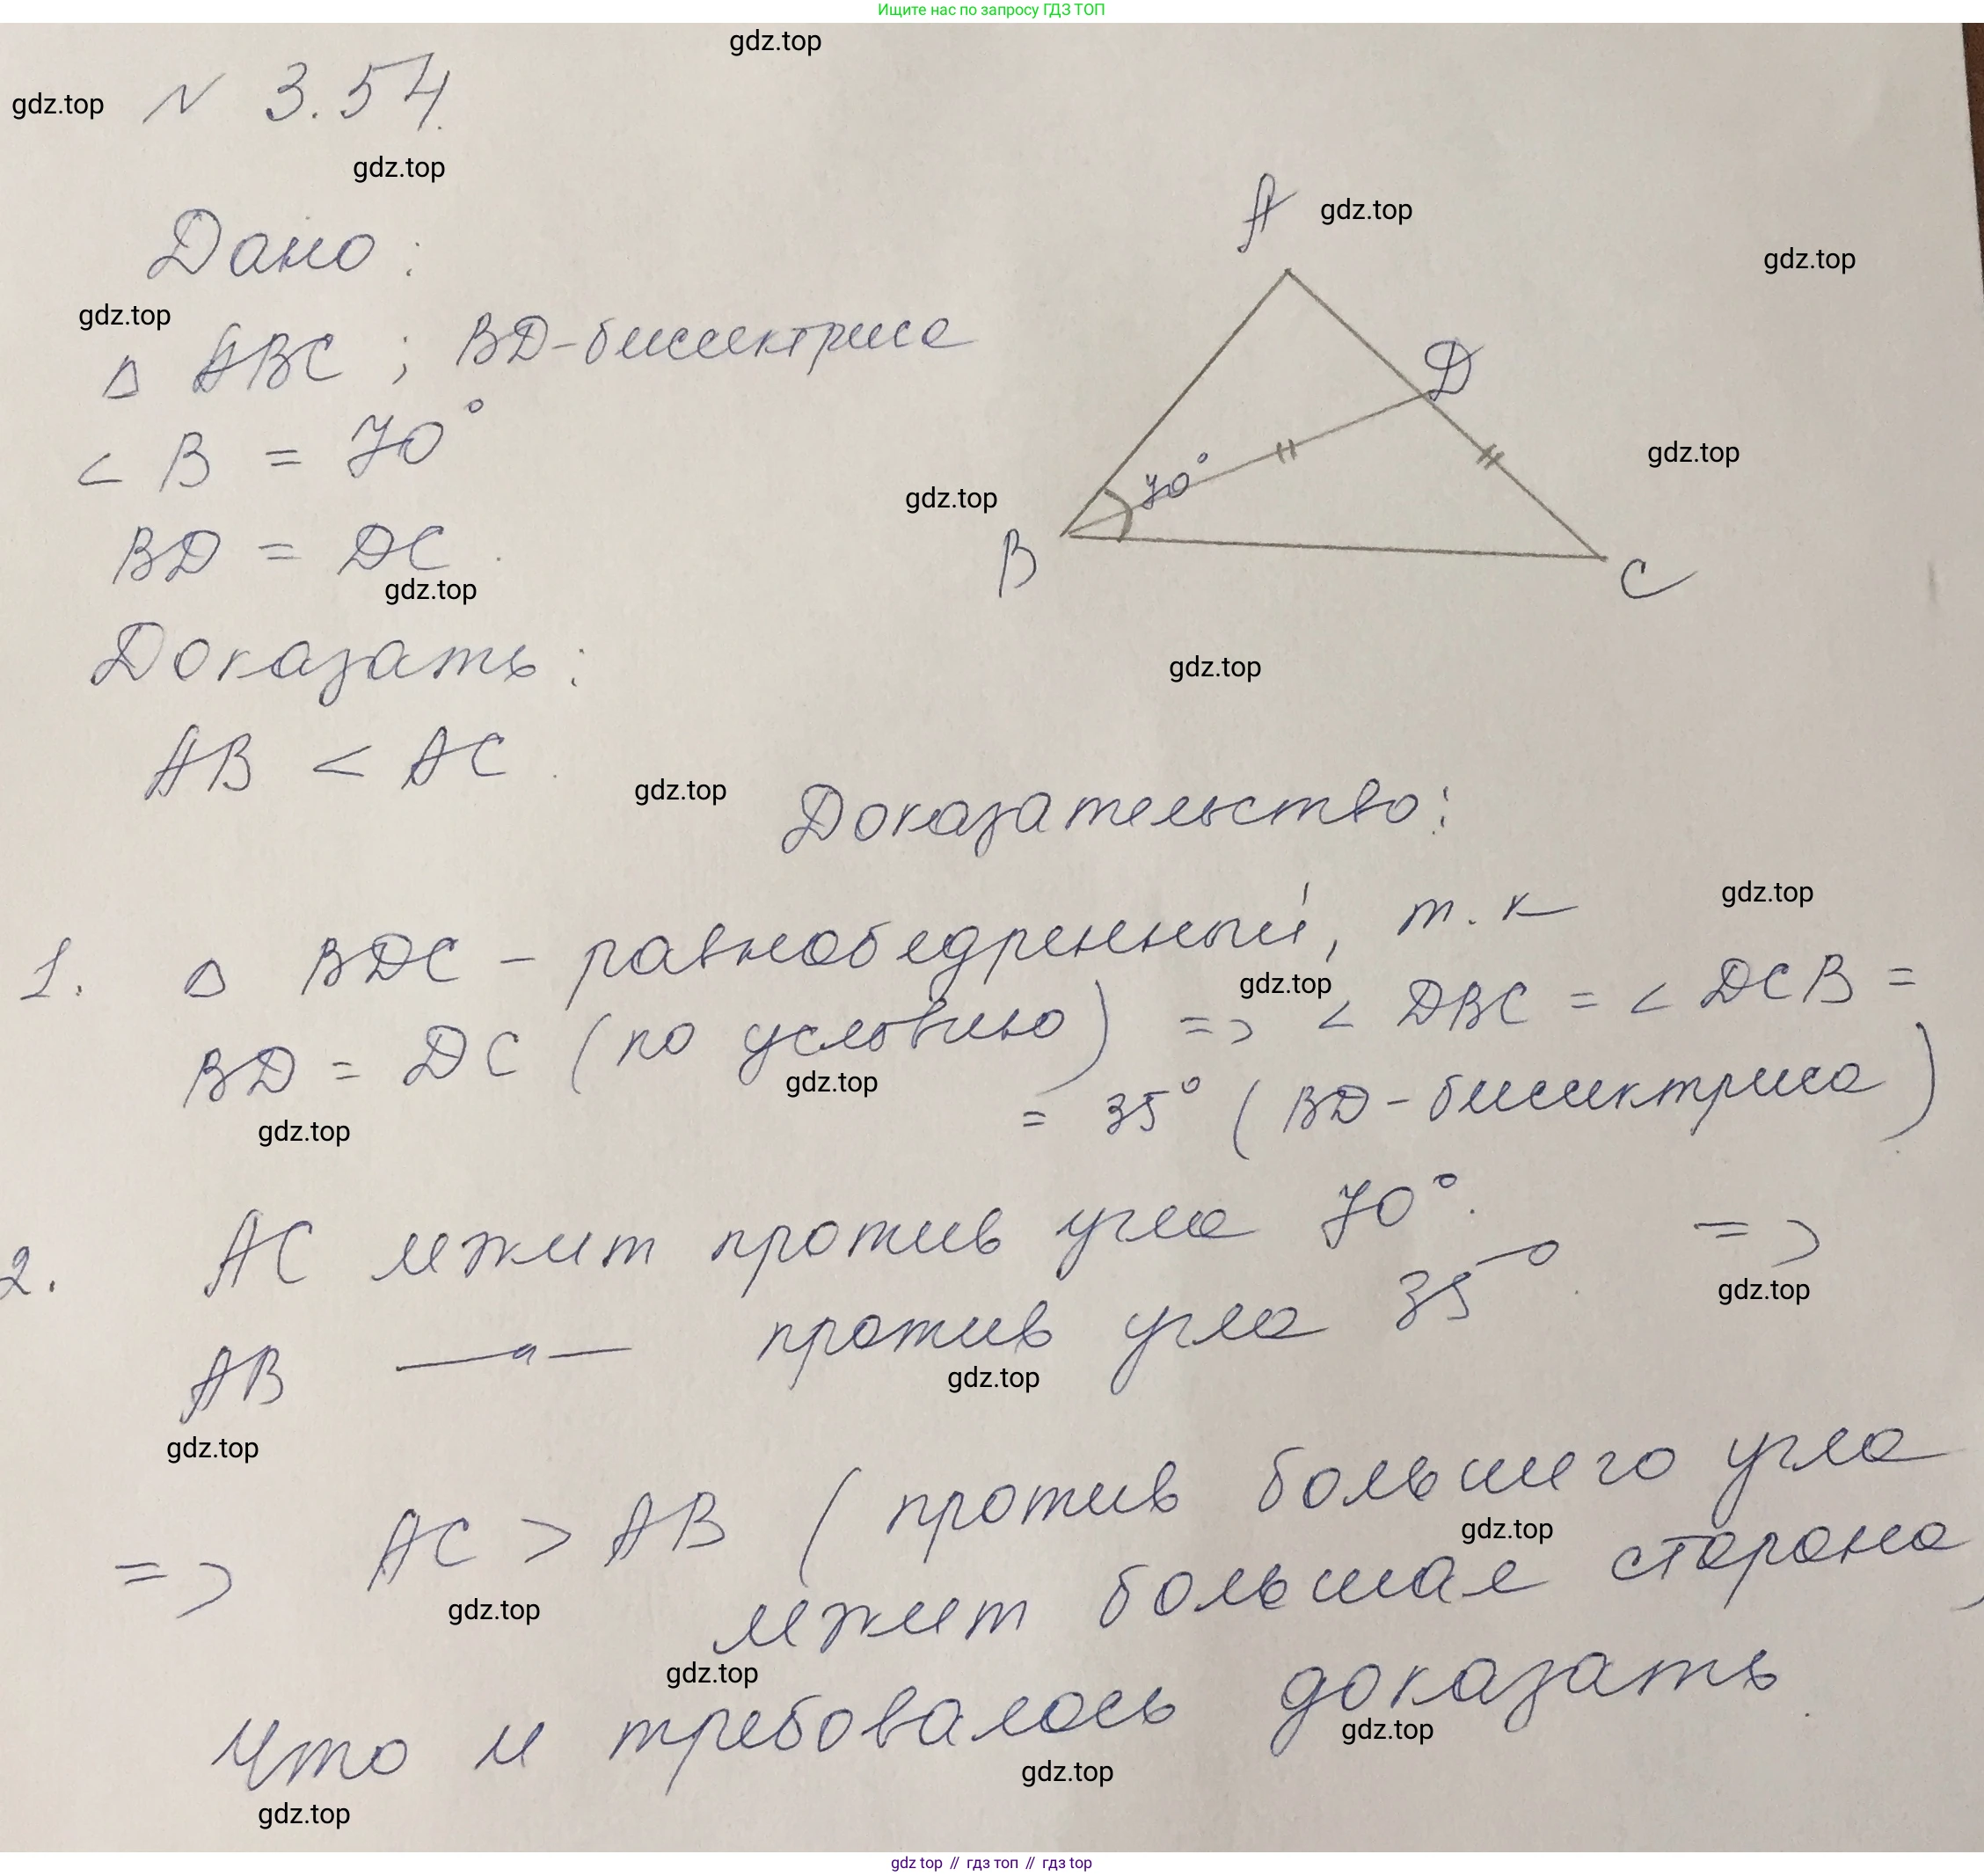 Ищите нас по запросу ГДЗ ТОП
gdz.top
gdz.top № 3.54.
gdz.top
A gdz.top
Дано:
gdz.top
gdz.top
△ ABC ; BD-биссектриса
D
∠ B = 70°
gdz.top
70°
gdz.top
BD = DC.
B
C
gdz.top
Доказать:
gdz.top
AB < AC.
gdz.top
Доказательство:
gdz.top
1. △ BDC - равнобедренный, т.к
gdz.top
BD = DC (по условию) => ∠ DBC = ∠ DCB =
gdz.top
= 35° (BD-биссектриса)
gdz.top
2. AC лежит против угла 70°. =>
gdz.top
AB —"— против угла 35°.
gdz.top
gdz.top
=> AC > AB (против большего угла
gdz.top
gdz.top
лежит большая сторона)
gdz.top
Что и требовалось доказать.
gdz.top
gdz.top
gdz.top
gdz top // гдз топ // гдз top